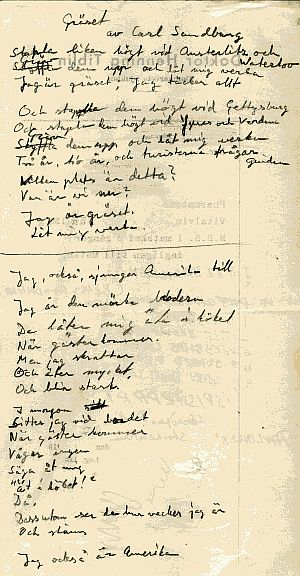 Gräset
av Carl Sandburg
Stapla liken högt vid Austerlitz och Waterloo
dem upp och låt mig verka
Jag är gräset; Jag täcker allt
Och stapla dem högt vid Gettysburg
Och stapla dem högt vid Ypres och Verdun
dem upp och låt mig verka
Två år, tio år, och turisterna frågar guiden
Vilken plats är detta?
Var är vi nu?
Jag är gräset.
Låt mig verka.
Jag, också, sjunger Amerika till
Jag är den mörka brodern
De låter mig äta i köket
När gäster kommer.
Men jag skrattar
Och äter mycket,
Och blir stark.
I morgon
Sitter jag vid bordet
När gäster kommer
Vågar ingen
Säga åt mig
"Ät i köket!"
Då.
Dessutom ser de hur vacker jag är
Och skäms
Jag också är Amerika